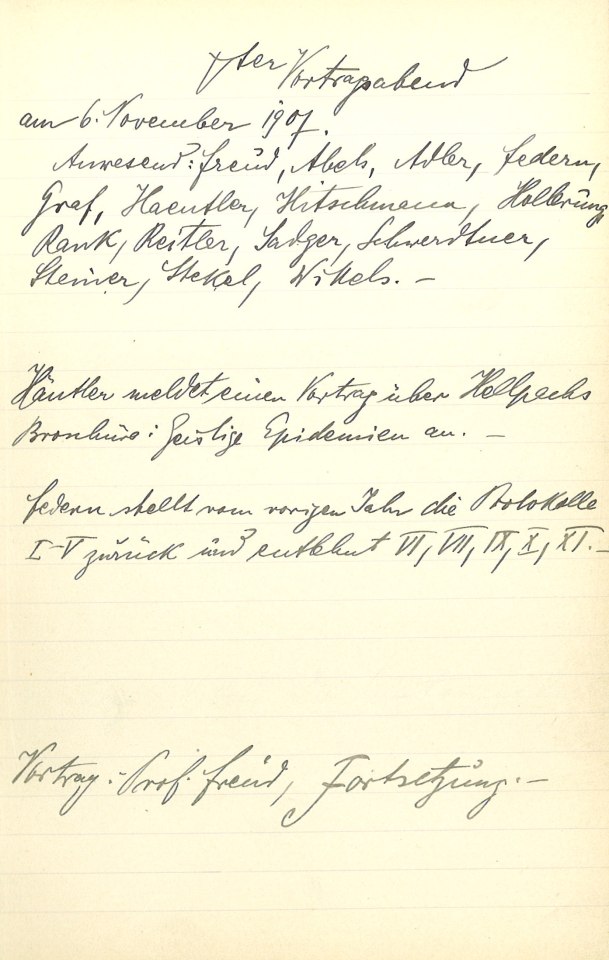 ter Vortragsabend
am 6. November 1907.
Anwesend: Freud, Abels, Adler, Federn,
Graf, Haeutler, Hitschmann, Hollerung,
Rank, Reitler, Sadger, Schwerdtner,
Steiner, Stekel, Wittels. –
Häutler meldet einen Vortrag über Hellpachs
Broschüre: Geistige Epidemien an. –
Federn stellt vom vorigen Jahr die Protokolle
I–V zurück und entlehnt VI, VII, IX, X, XI. –
Vortrag: Prof. Freud, Fortsetzung. –